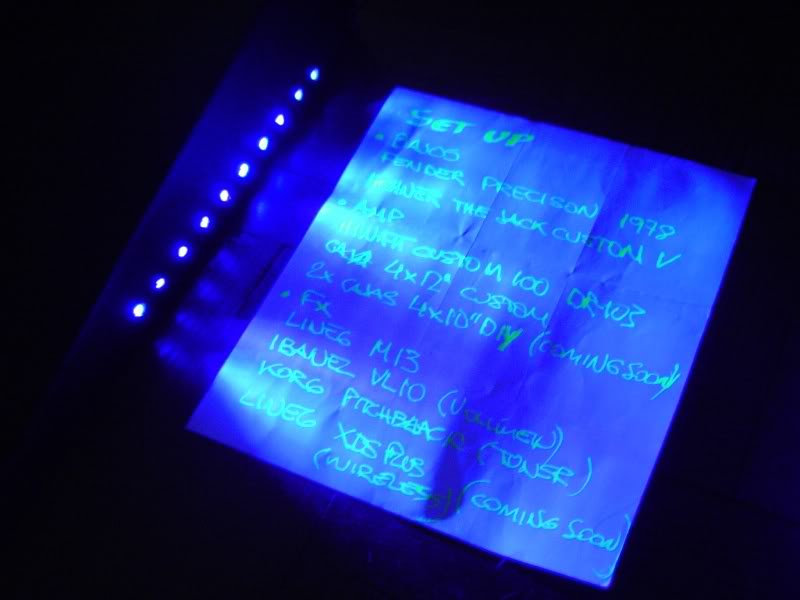 SET UP
• BAJOS
FENDER PRECISON 1978
WARWICK THE JACK CUSTOM V
• AMP
HIWATT CUSTOM 100 DR-103
CAJA 4x12" CUSTOM
2x CAJAS 4x10" DIY (COMING SOON)
• FX
LINE6 M13
IBANEZ VL10 (VOLUMEN)
KORG PITCHBLACK (TUNER)
LINE6 XDS PLUS
(WIRELESS) (COMING SOON)